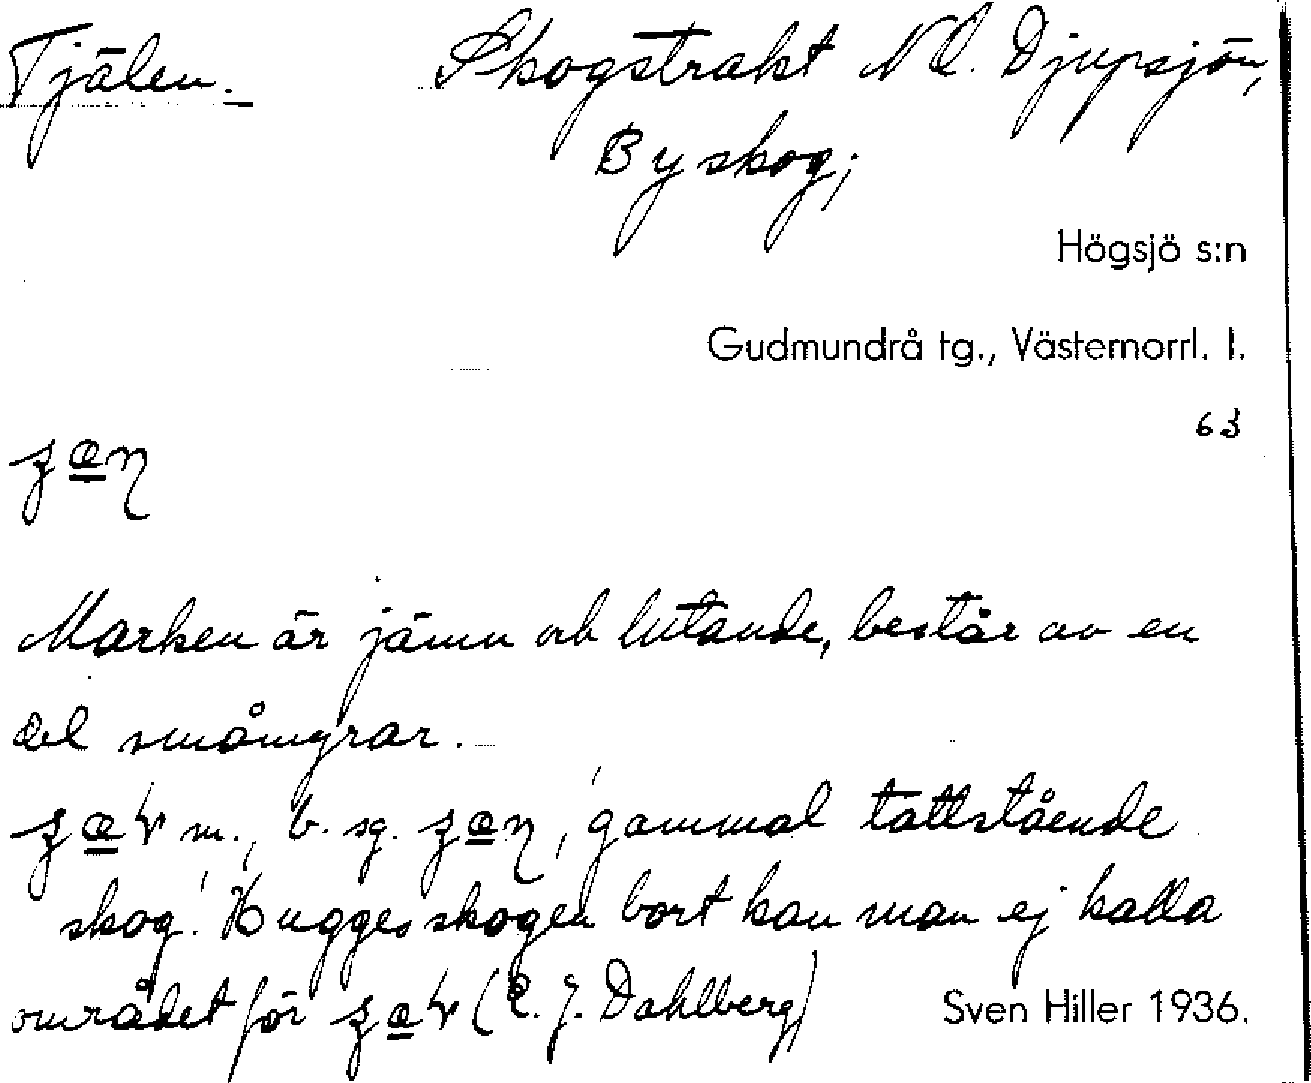 Tjälen. Skogstrakt NO. Djupsjön,
Byskog;
Högsjö s:n
Gudmundrå tg., Västernorrl. l.
63
Marken är jämn och lutande, består av en
del småmyrar.
m., b. sg. 'gammal tättstående
skog'. Hugges skogen bort kan man ej kalla
området för (E. J. Dahlberg)
Sven Hiller 1936.